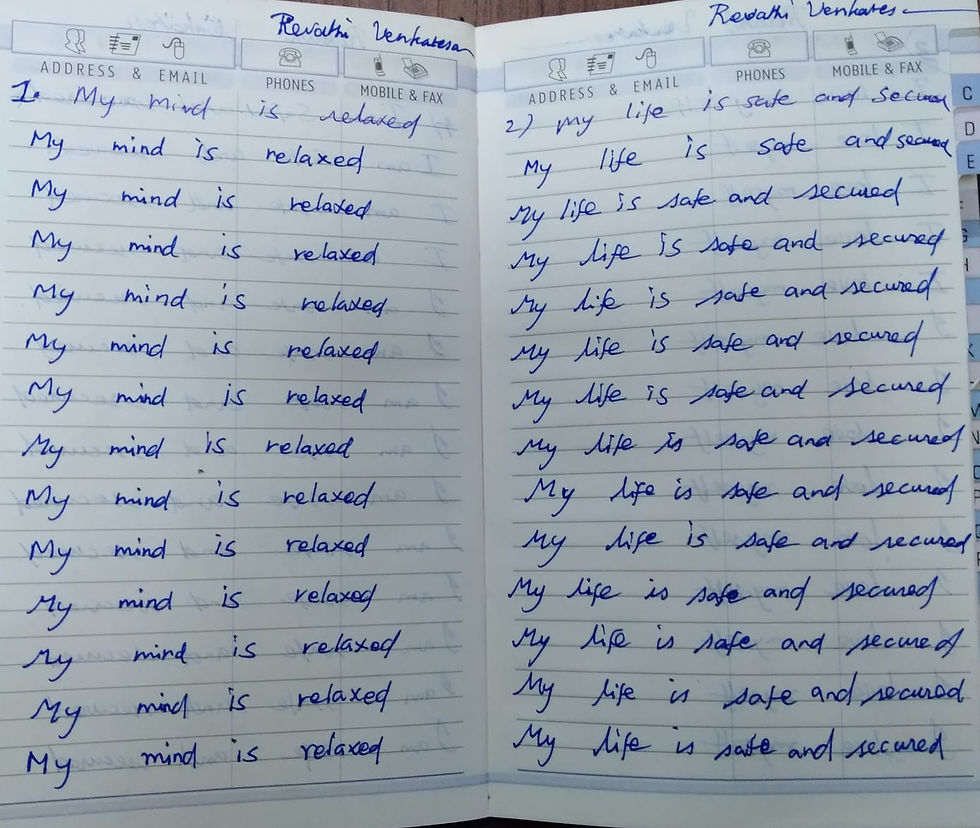 Revathi Venkatesan
ADDRESS & EMAIL PHONES MOBILE & FAX
1. My mind is relaxed
My mind is relaxed
My mind is relaxed
My mind is relaxed
My mind is relaxed
My mind is relaxed
My mind is relaxed
My mind is relaxed
My mind is relaxed
My mind is relaxed
My mind is relaxed
My mind is relaxed
My mind is relaxed
My mind is relaxed
Revathi Venkates
ADDRESS & EMAIL PHONES MOBILE & FAX
2) My life is safe and secured
My life is safe and secured
My life is safe and secured
My life is safe and secured
My life is safe and secured
My life is safe and secured
My life is safe and secured
My life is safe and secured
My life is safe and secured
My life is safe and secured
My life is safe and secured
My life is safe and secured
My life is safe and secured
My life is safe and secured
C
D
E